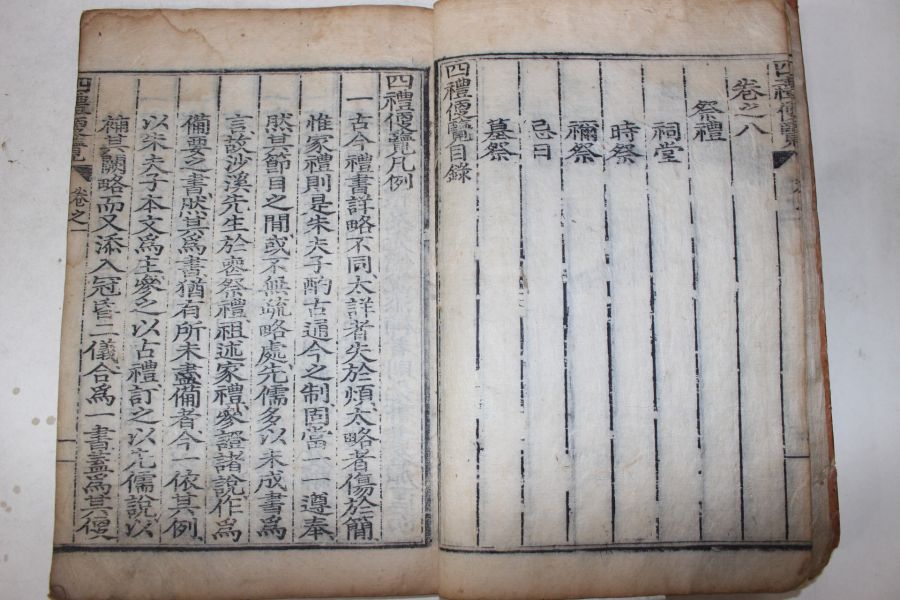 四禮便覽
卷之八
祭禮
祠堂
時祭
禰祭
忌日
墓祭
四禮便覽目錄
四禮便覽凡例
一古今禮書詳略不同太詳者失於煩太略者傷於簡
惟家禮則是朱夫子酌古通今之制固當一一遵奉
然其節目之間或不無疏略處先儒多以未成書爲
言故沙溪先生於喪祭禮祖述家禮參證諸說作爲
備要之書然其爲書猶有所未盡備者今一依其例
以朱夫子本文爲主參之以古禮訂之以先儒說以
補其闕略而又添入冠昏二儀合爲一書蓋爲其便
四禮便覽
卷之一
一